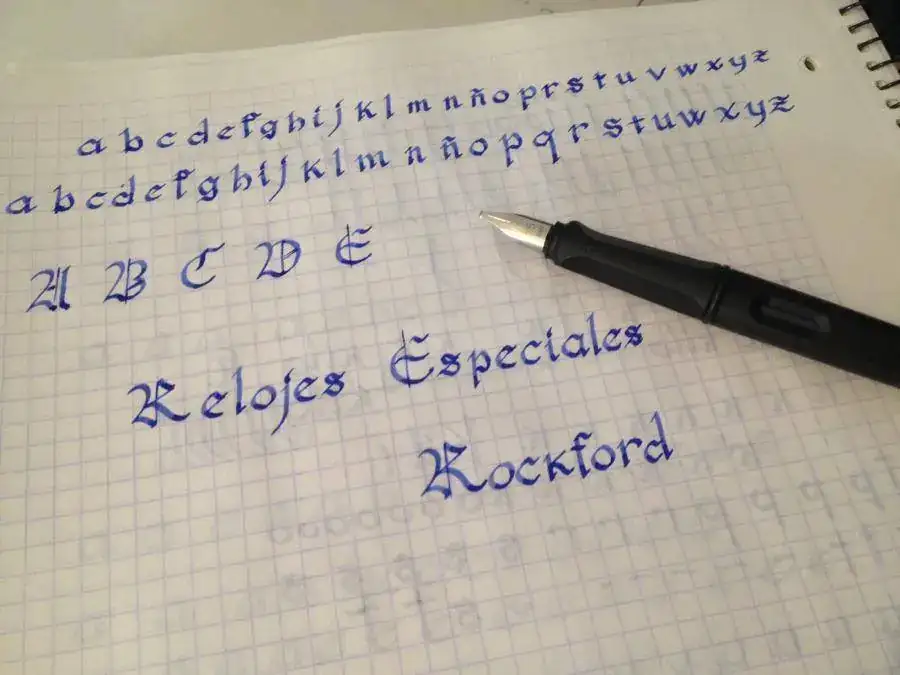 a b c d e f g h i j k l m n ñ o p r s t u v w x y z
a b c d e f g h i j k l m n ñ o p q r s t u w x y z
A B C D E
Relojes Especiales
Rockford